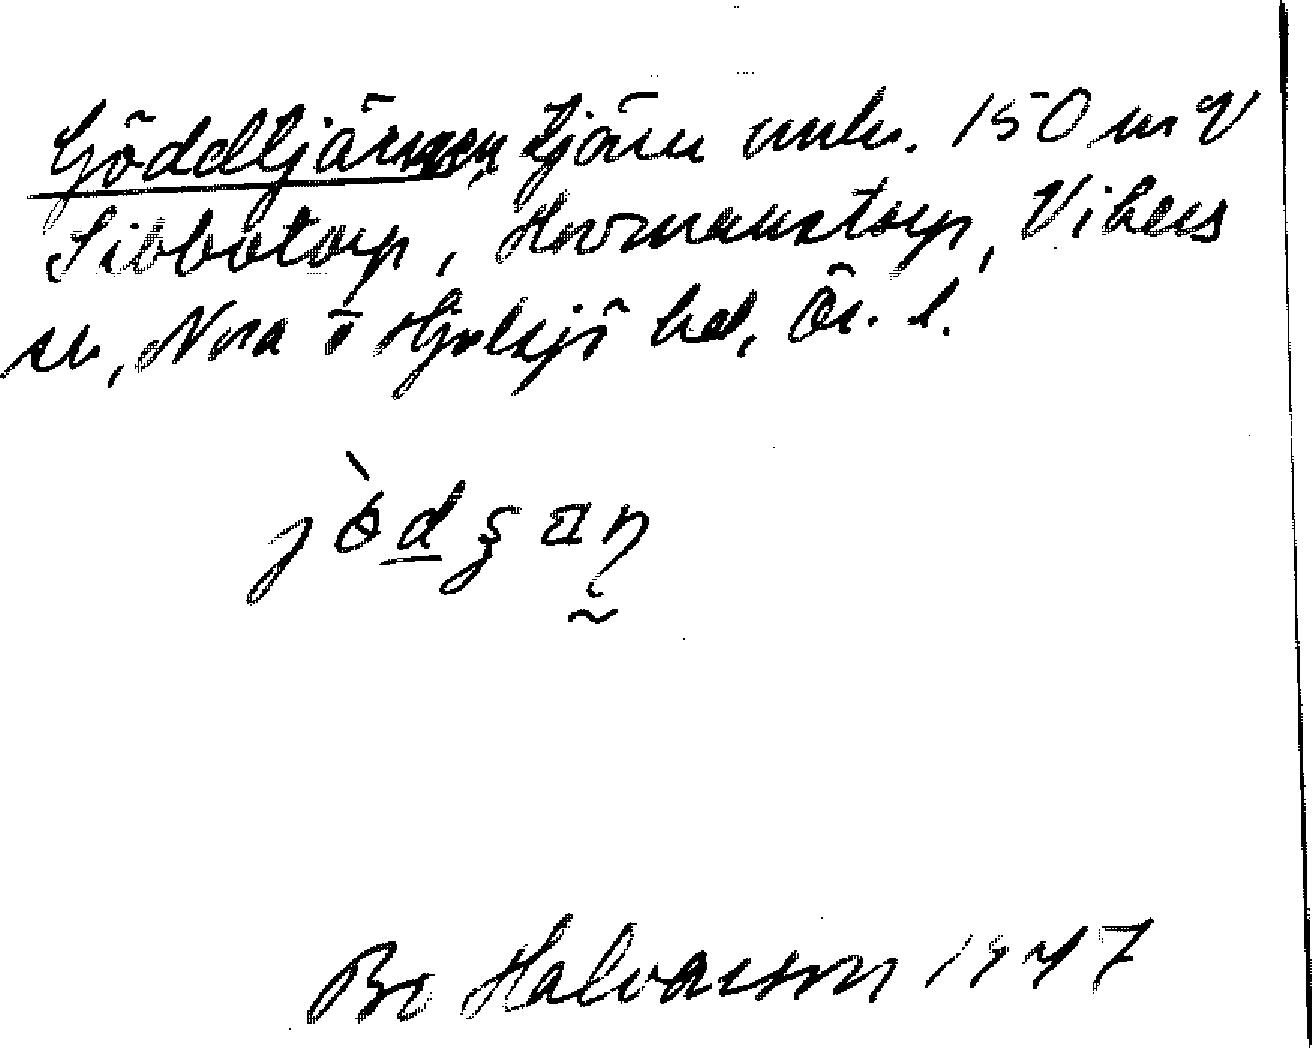 Göddtjärnen, tjärn omkr. 150 m V
Sibbotorp, Hormanstorp, Vikers
sn, Nora o Hjulsjö hd, Ör. l.
Bo Halvarson 1947